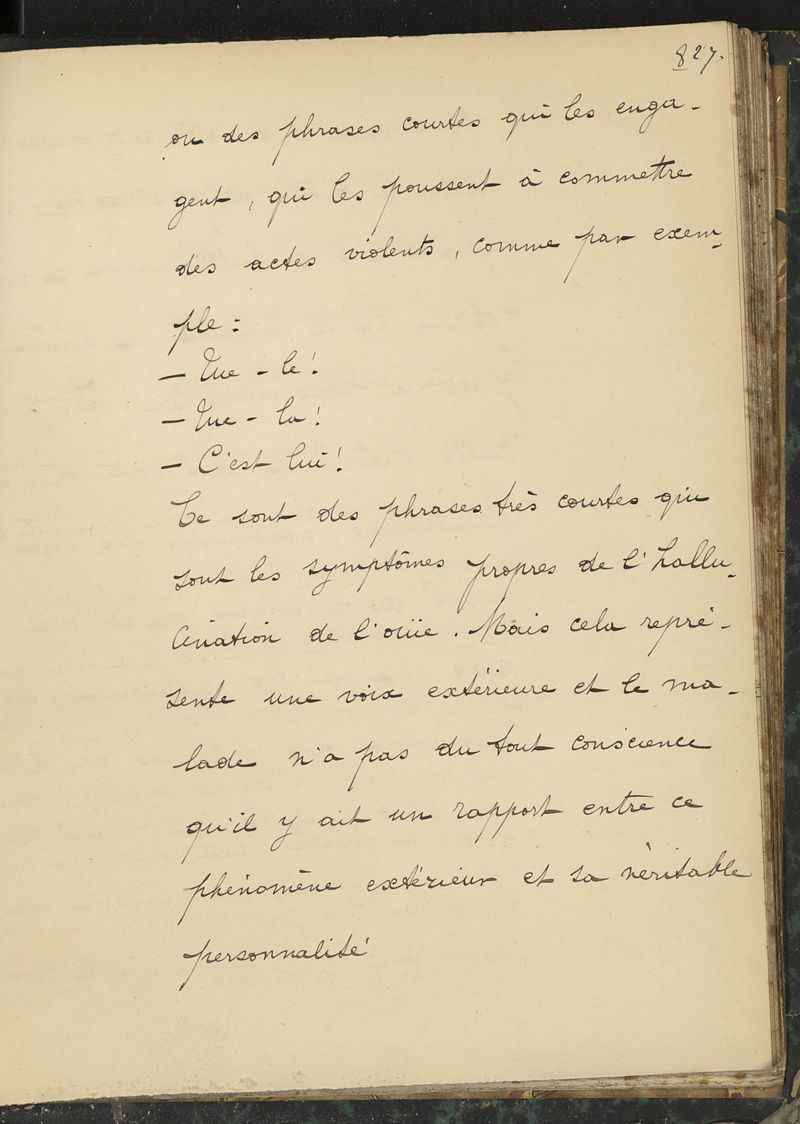 827.
ou des phrases courtes qui les enga-
gent, qui les poussent à commettre
des actes violents, comme par exem-
ple :
— Tue - le !
— Tue - la !
— C'est lui !
Ce sont des phrases très courtes qui
sont les symptômes propres de l'hallu-
cination de l'ouïe. Mais cela repré-
sente une voix extérieure et le ma-
lade n'a pas du tout conscience
qu'il y ait un rapport entre ce
phénomène extérieur et sa véritable
personnalité